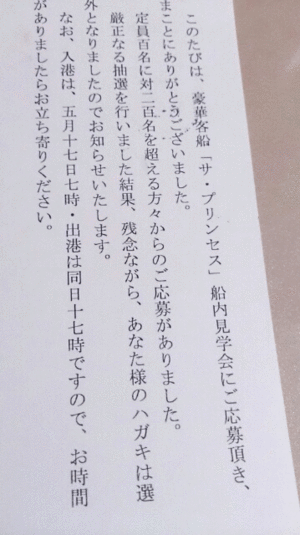 このたびは、豪華客船「サ・プリンセス」船内見学会にご応募頂き、
まことにありがとうございました。
定員百名に対二百名を超える方々からのご応募がありました。
厳正なる抽選を行いました結果、残念ながら、あなた様のハガキは選
外となりましたのでお知らせいたします。
なお、入港は、五月十七日七時・出港は同日十七時ですので、お時間
がありましたらお立ち寄りください。